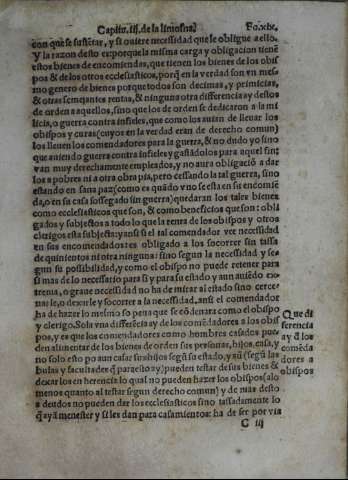 Capitu. iij. de la limosna. Fo.xix.
con que se sustẽtar, y si ouiere necessidad que le obligue a ello.
Y la razon desto es porque la misma carga y obligacion tienẽ
estos bienes de encomiendas, que tienen los bienes de los obis
pos & de los otros ecclesiasticos, porq̃ en la verdad son vn mes
mo genero de bienes porque todos son decimas, y primicias,
& otras semejantes rentas, & ninguna otra differencia ay destos
de orden a aquellos, sino que los de orden se dedicaron a la mi
licia, o guerra contra infieles, que como los auian de lleuar los
obispos y curas (cuyos en la verdad eran de derecho comun)
los lleuen los comendadores para la guerra, & no dudo yo sino
que auiendo guerra contra infieles y gastãdolos para aquel fin
van muy derechamente empleados, y no aura obligaciõ a dar
los a pobres ni a otra obra pia, pero cessando la tal guerra, sino
estando en sana paz (como es quãdo y no se esta en su encomiẽ
da, o en su casa sossegado sin guerra) quedaran los tales bienes
como ecclesiasticos que son, & como beneficios que son: obli
gados y subjectos a todo lo que la renta de los obispos y otros
clerigos esta subjecta: y ansi si el tal comendador vee necessidad
en sus encomendados: es obligado a los socorrer sin tassa
de quinientos ni otra ninguna: sino segun la necessidad y se
gun su possibilidad, y como el obispo no puede retener para
si mas de lo necessario para si y para su estado y aun auiẽdo ex
trema, o graue necessidad no ha de mirar al estado sino cerce
narle, o dexarle y socorrer a la necessidad, ansi el comendador
ha de hazer lo mesmo so pena que se cõdenara como el obispo
y clerigo. Sola vna differẽcia ay de los comẽdadores a los obis
pos, y es que los comendadores como hombres casados pue-
den alimentar de los bienes de orden sus personas, hijos, casa, y
no solo esto pero aun casar sus hijos segũ su estado, y aũ (segũ las
bulas y facultades q̃ para esto ay) pueden testar de sus bienes &
dexar los en herencia lo qual no pueden hazer los obispos (alo
menos quanto al testar segun derecho comun) y de mas desto
a deudos no pueden dar los ecclesiasticos sino tassadamente lo
q̃ ayã menester y si les dan para casamientos: ha de ser por via
Que di
fferencia
ay d̃ los
comẽda
dores a
obispos
C iij